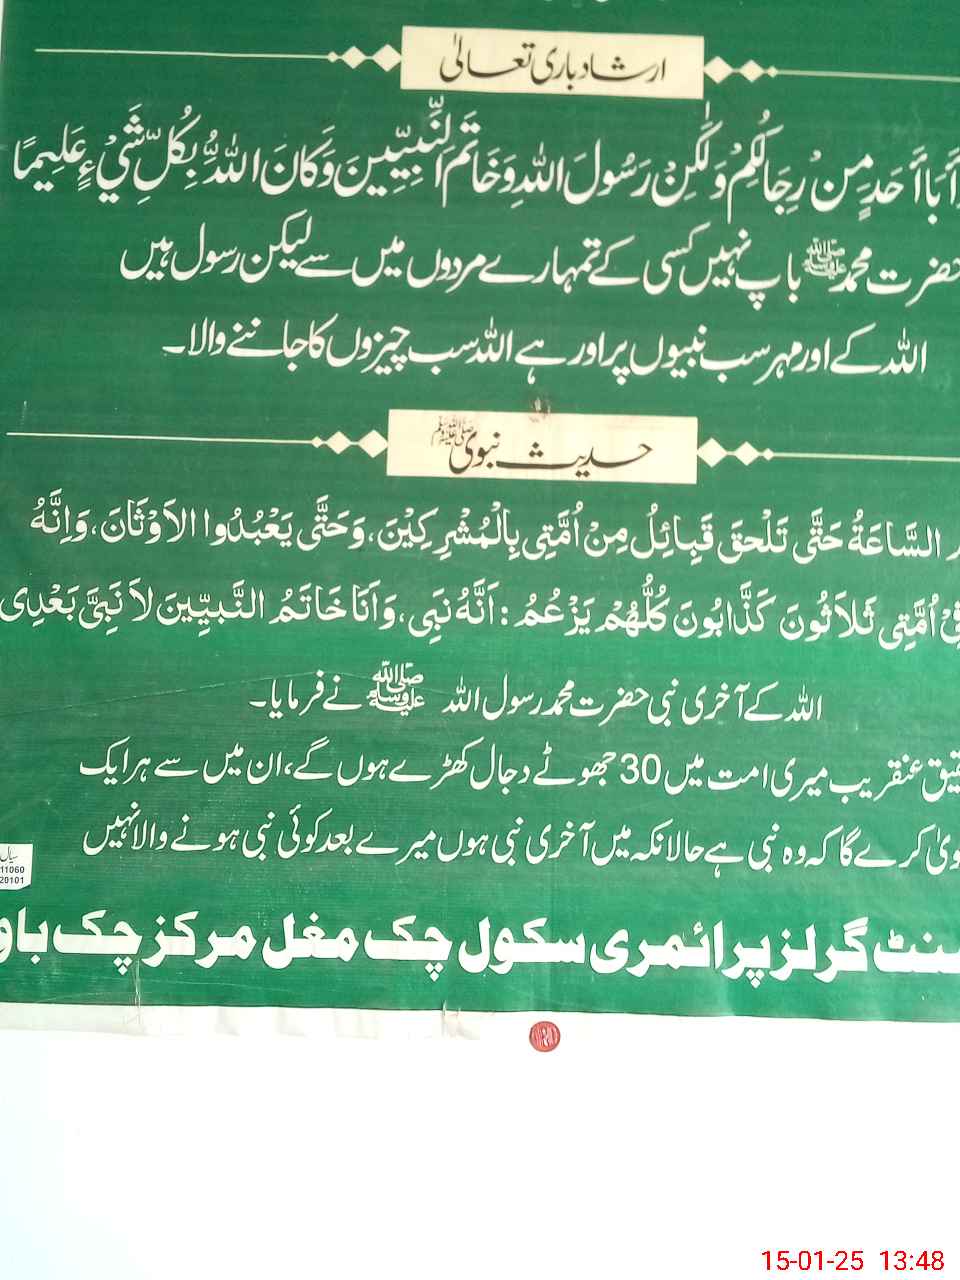 ارشاد باری تعالیٰ
أَبَا أَحَدٍ مِن رِجَالِكُمْ وَلَٰكِنْ رَسُولَ اللهِ وَخَاتَمَ النَّبِيِّينَ وَكَانَ اللهُ بِكُلِّ شَيْءٍ عَلِيمًا
حضرت محمد ﷺ باپ نہیں کسی کے تمہارے مردوں میں سے لیکن رسول ہیں
اللہ کے اور مہر سب نبیوں پر اور ہے اللہ سب چیزوں کا جاننے والا۔
حدیث نبوی ﷺ
السَّاعَةُ حَتَّى تَلْحَقَ قَبِائِلُ مِنْ اُمَّتِى بِالْمُشْرِكِيْنَ، وَحَتَّى يَعْبُدُوا الاَوْثَانَ، وَاِنَّهُ
اُمَّتِى ثَلاَثُونَ كَذَّابُونَ كُلُّهُمْ يَزْعُمُ : اَنَّهُ نَبِى، وَاَنَا خَاتَمُ النَّبِيِّينَ لاَ نَبِىَّ بَعْدِى
اللہ کے آخری نبی حضرت محمد رسول اللہ ﷺ نے فرمایا۔
عنقریب میری امت میں 30 جھوٹے دجال کھڑے ہوں گے، ان میں سے ہر ایک
کرے گا کہ وہ نبی ہے حالانکہ میں آخری نبی ہوں میرے بعد کوئی نبی ہونے والا نہیں
سیال
11060
20101
گرلز پرائمری سکول چک مغل مرکز چک
15-01-25 13:48